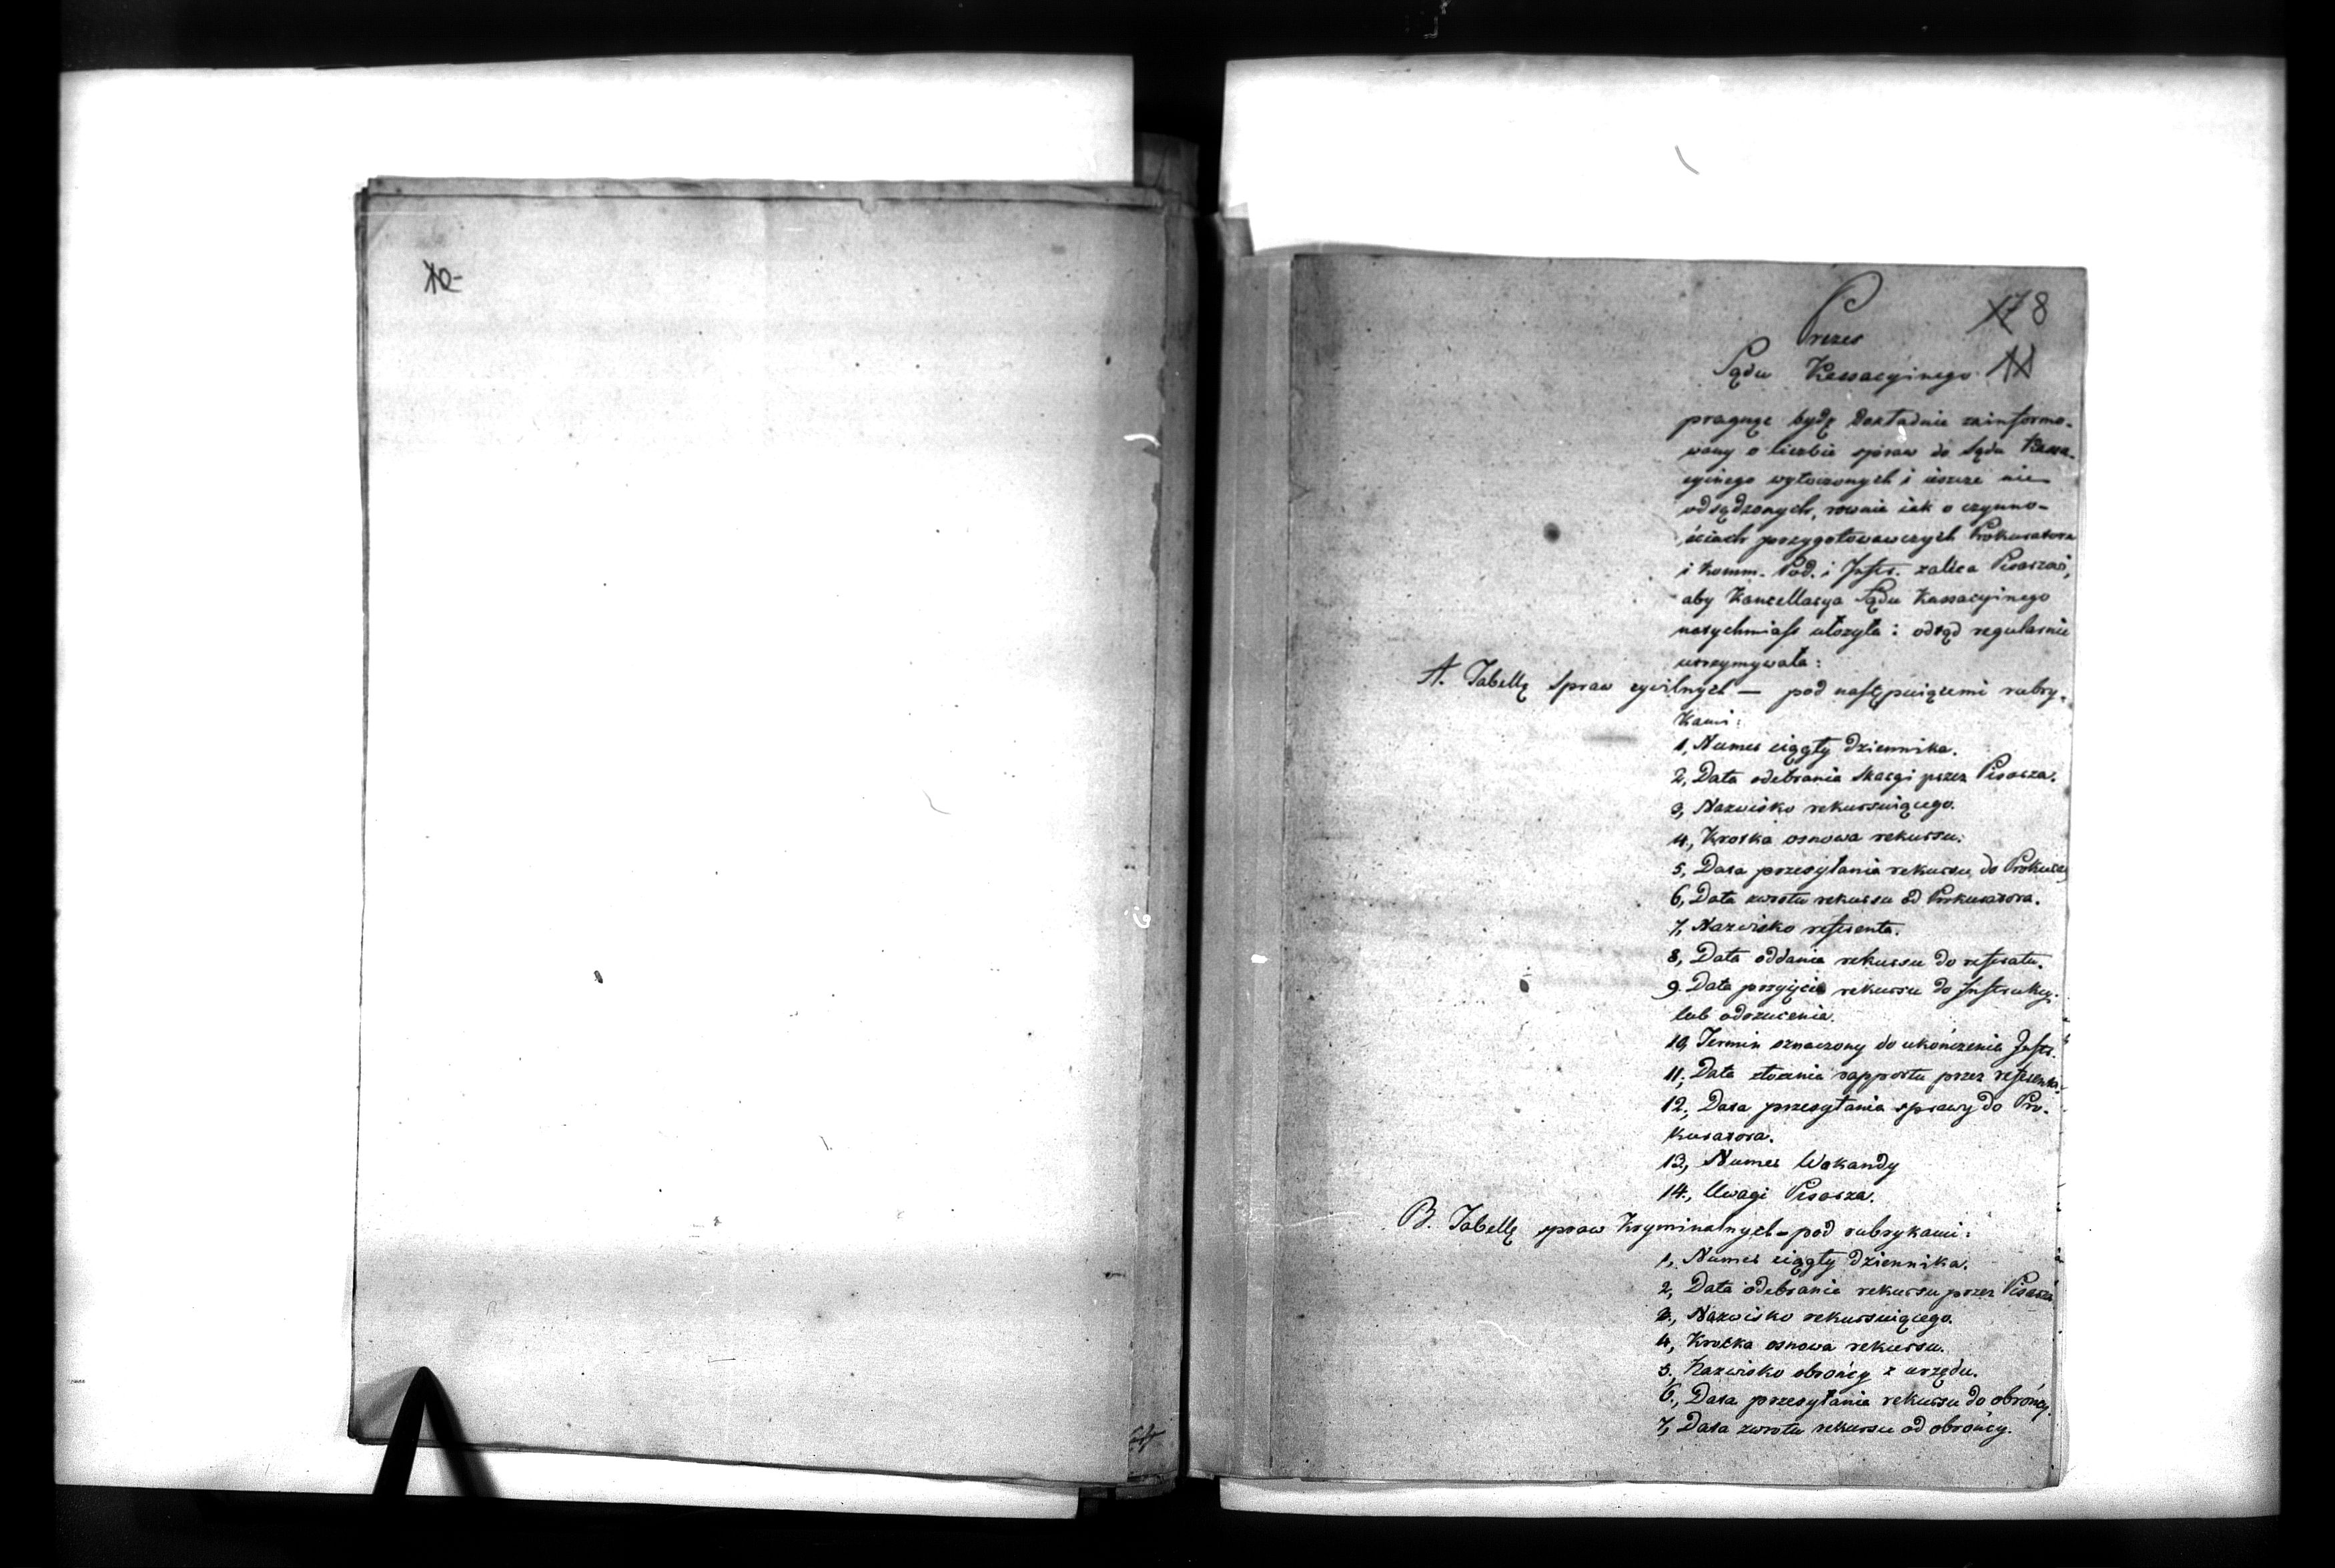 10
17 8
Prezes
Sądu Kassacyinego 11
pragnąc bydź dokładnie zainformo-
wany o liczbie spraw do Sądu Kassa-
cyinego wytoczonych i ieszcze nie
odsądzonych, rownie iak o czynno-
ściach przygotowawczych Prokuratora
i Komm. Pod. i Instr. zaleca Pisarzowi,
aby Kancellarya Sądu Kassacyinego
natychmiast ułożyła i odtąd regularnie
utrzymywała:
A. Tabellę Spraw cywilnych — pod następuiącemi rubry-
kami:
1, Numer ciągły dziennika.
2, Data odebrania skargi przez Pisarza.
3, Nazwisko rekursuiącego.
4, Krotka osnowa rekursu.
5, Data przesyłania rekursu do Prokurat.
6, Data zwrotu rekursu od Prokuratora.
7, Nazwisko referenta.
8, Data oddania rekursu do referatu.
9. Data przyięcia rekursu do Instrukcy.
lub odrzucenia.
10, Termin oznaczony do ukończenia Instr.
11, Data złożenia rapportu przez referenta.
12, Data przesyłania sprawy do Pro-
kuratora.
13, Numer Wokandy
14, Uwagi Pisarza.
B. Tabellę spraw Kryminalnych - pod rubrykami:
1, Numer ciągły dziennika.
2, Data odebrania rekursu przez Pisarza
3, Nazwisko rekursuiącego.
4, Krotka osnowa rekursu.
5, Nazwisko obrońcy z urzędu.
6, Data przesyłania rekursu do obrońcy.
7, Data zwrotu rekursu od obrońcy.